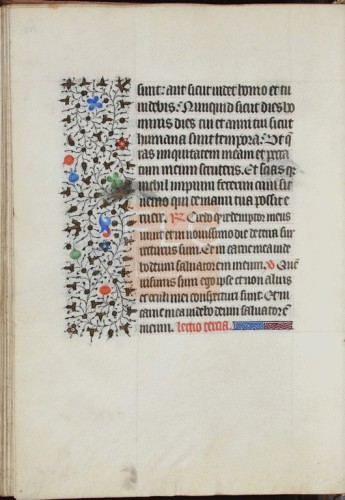 sunt: aut sicut videt homo et tu
videbis: Nunquid sicut dies ho
minis dies tui et anni tui sicut
humana sunt tempora: Ut q̄
ras iniquitatem meam et pecca
tum meum scruteris. Et scias q̄
nichil impium fecerim cum sit
nemo qui de manu tua possit e
ruere. R Credo q̄ redemptor meus
vivit et in novissimo die de terra sur
recturus sum. Et in carne mea vide
bo deum salvatorem meum. V Quē
visurus sum ego ipse et non alius
et oculi mei conspecturi sunt. Et in
carne mea videbo deum salvatorē
meum. lectio tercia.